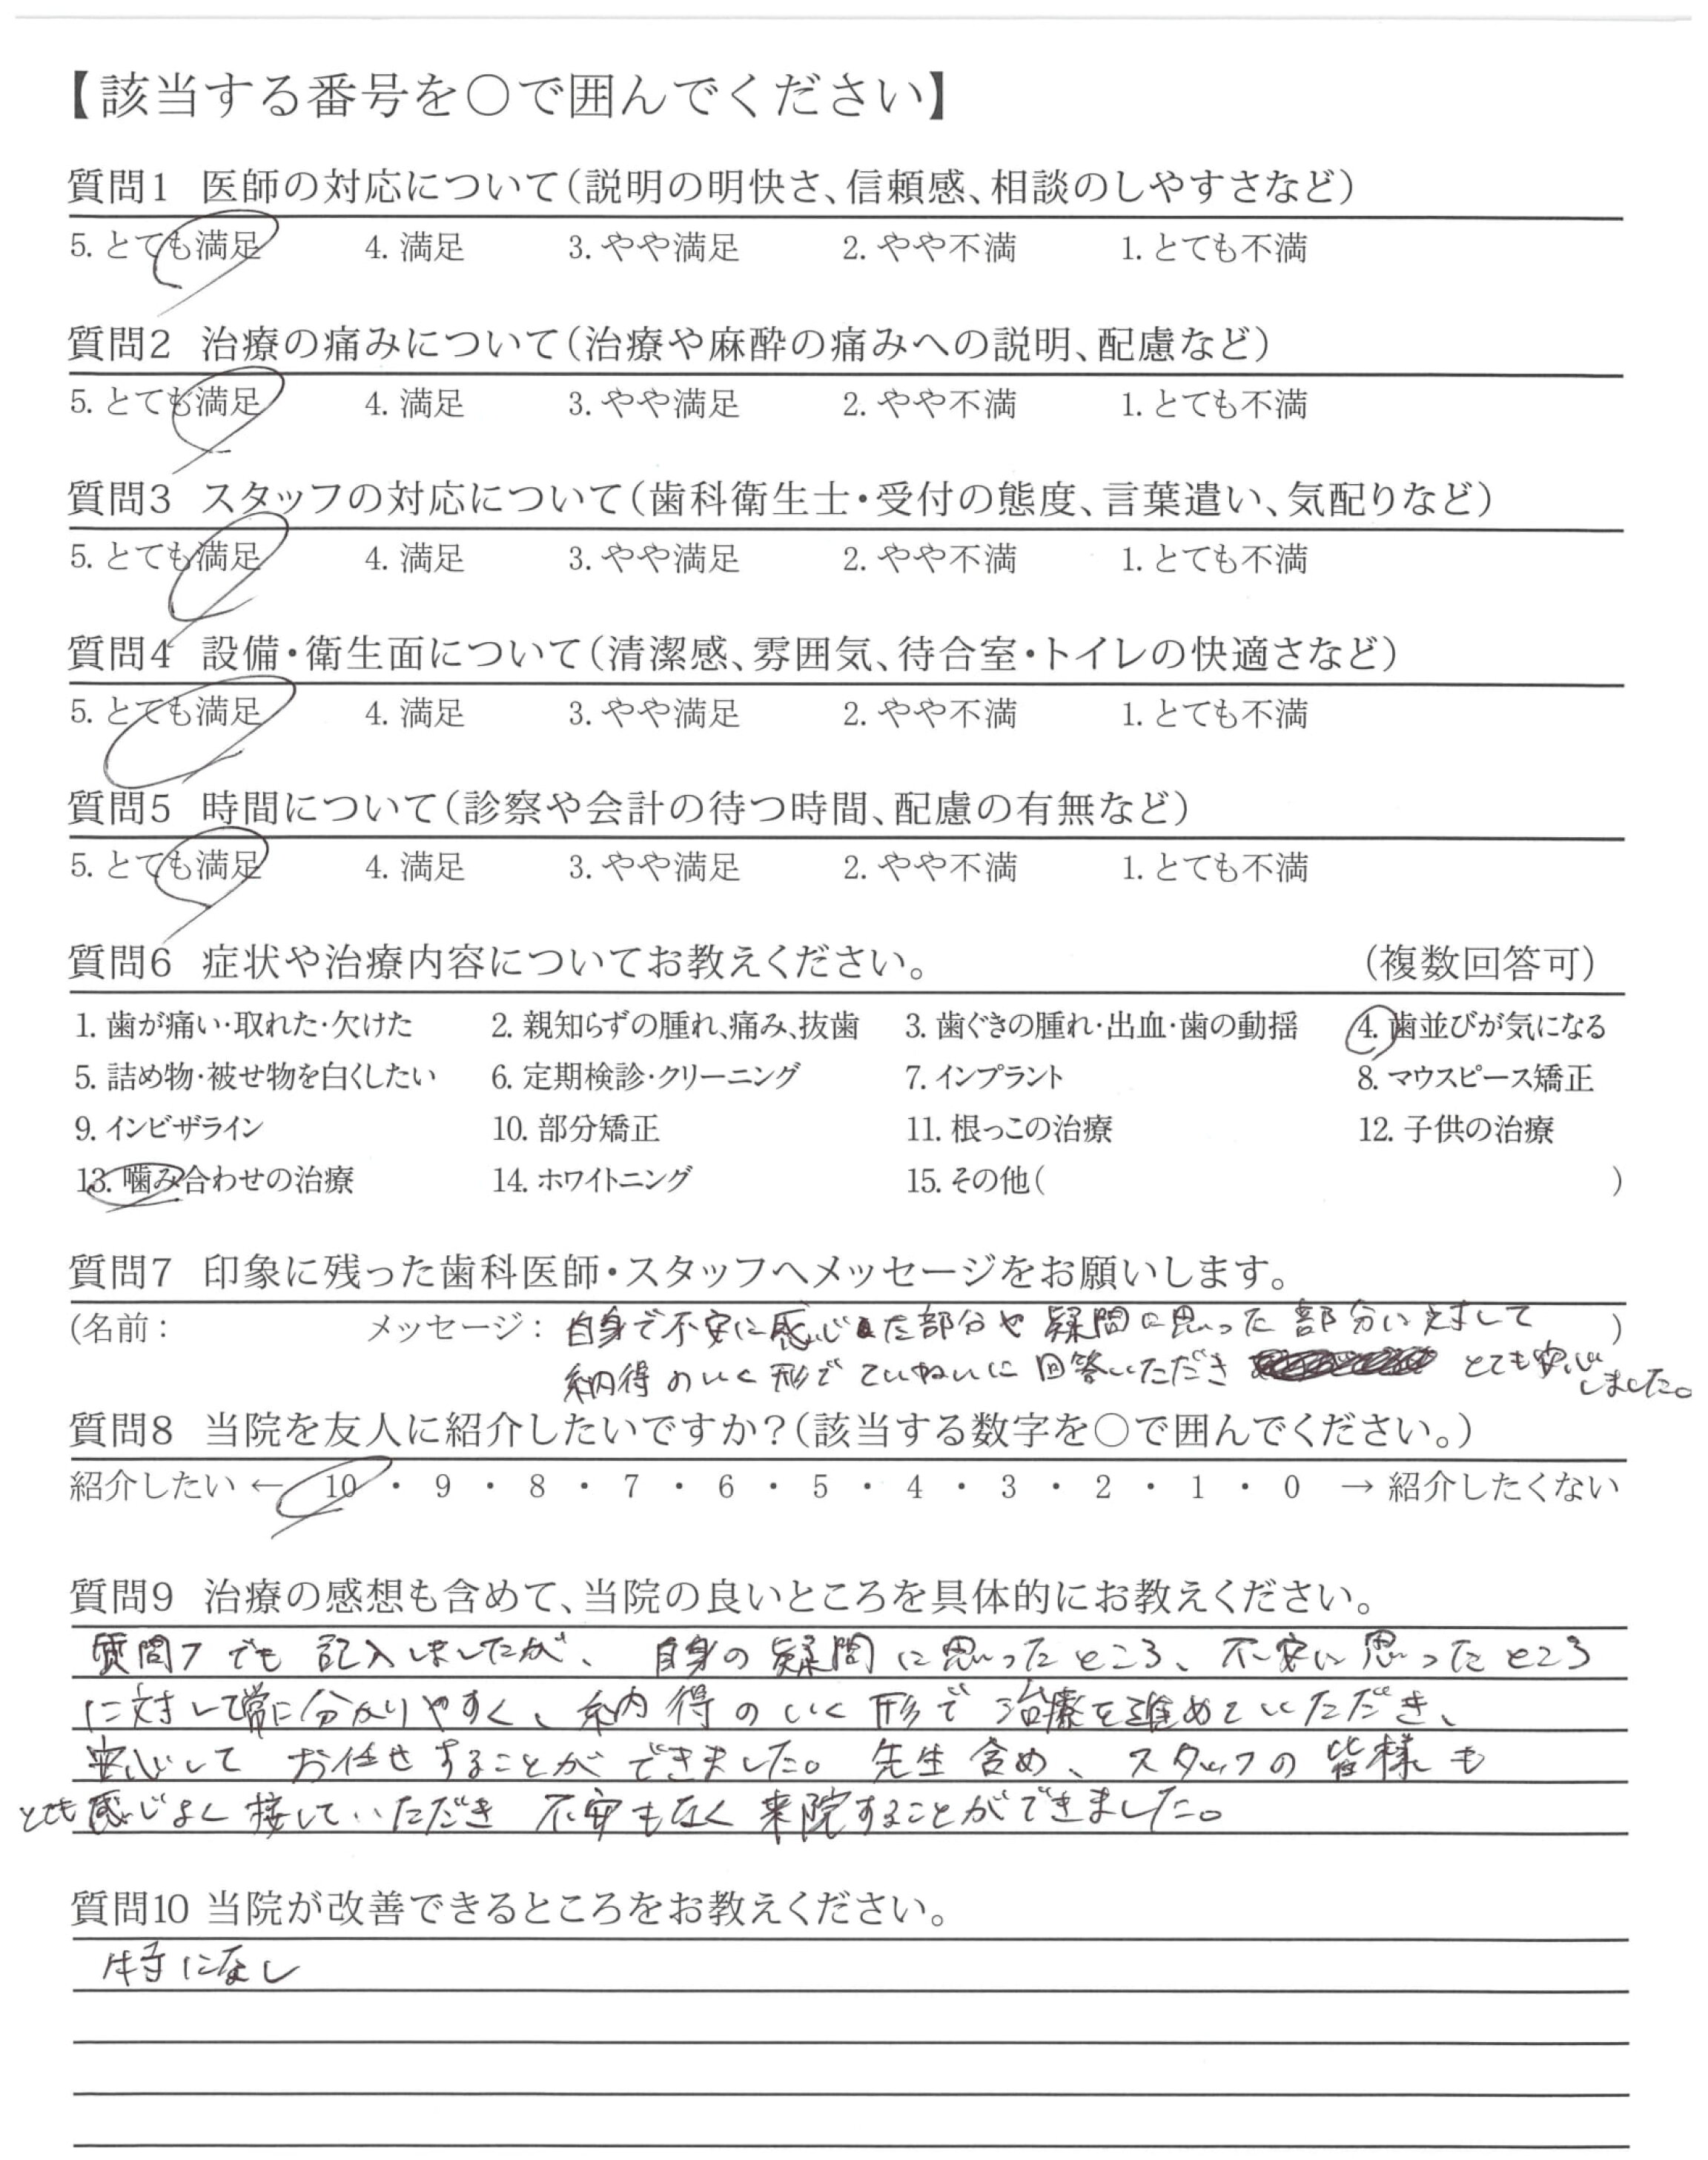 【該当する番号を○で囲んでください】
質問1 医師の対応について（説明の明快さ、信頼感、相談のしやすさなど）
5. とても満足 4. 満足 3. やや満足 2. やや不満 1. とても不満
質問2 治療の痛みについて（治療や麻酔の痛みへの説明、配慮など）
5. とても満足 4. 満足 3. やや満足 2. やや不満 1. とても不満
質問3 スタッフの対応について（歯科衛生士・受付の態度、言葉遣い、気配りなど）
5. とても満足 4. 満足 3. やや満足 2. やや不満 1. とても不満
質問4 設備・衛生面について（清潔感、雰囲気、待合室・トイレの快適さなど）
5. とても満足 4. 満足 3. やや満足 2. やや不満 1. とても不満
質問5 時間について（診察や会計の待つ時間、配慮の有無など）
5. とても満足 4. 満足 3. やや満足 2. やや不満 1. とても不満
質問6 症状や治療内容についてお教えください。 （複数回答可）
1. 歯が痛い・取れた・欠けた 2. 親知らずの腫れ、痛み、抜歯 3. 歯ぐきの腫れ・出血・歯の動揺 4. 歯並びが気になる
5. 詰め物・被せ物を白くしたい 6. 定期検診・クリーニング 7. インプラント 8. マウスピース矯正
9. インビザライン 10. 部分矯正 11. 根っこの治療 12. 子供の治療
13. 噛み合わせの治療 14. ホワイトニング 15. その他（ ）
質問7 印象に残った歯科医師・スタッフへメッセージをお願いします。
（名前： メッセージ：自身で不安に感じた部分や疑問に思った部分に対して ）
納得のいく形でていねいに回答いただき とても安心
しました。
質問8 当院を友人に紹介したいですか？（該当する数字を○で囲んでください。）
紹介したい ← 10 ・ 9 ・ 8 ・ 7 ・ 6 ・ 5 ・ 4 ・ 3 ・ 2 ・ 1 ・ 0 → 紹介したくない
質問9 治療の感想も含めて、当院の良いところを具体的にお教えください。
質問7でも記入しましたが、自身の疑問に思ったところ、不安に思ったところ
に対して常に分かりやすく、納得のいく形で治療を進めていただき、
安心してお任せすることができました。先生含め、スタッフの皆様も
とても感じよく接していただき不安もなく来院することができました。
質問10 当院が改善できるところをお教えください。
特になし